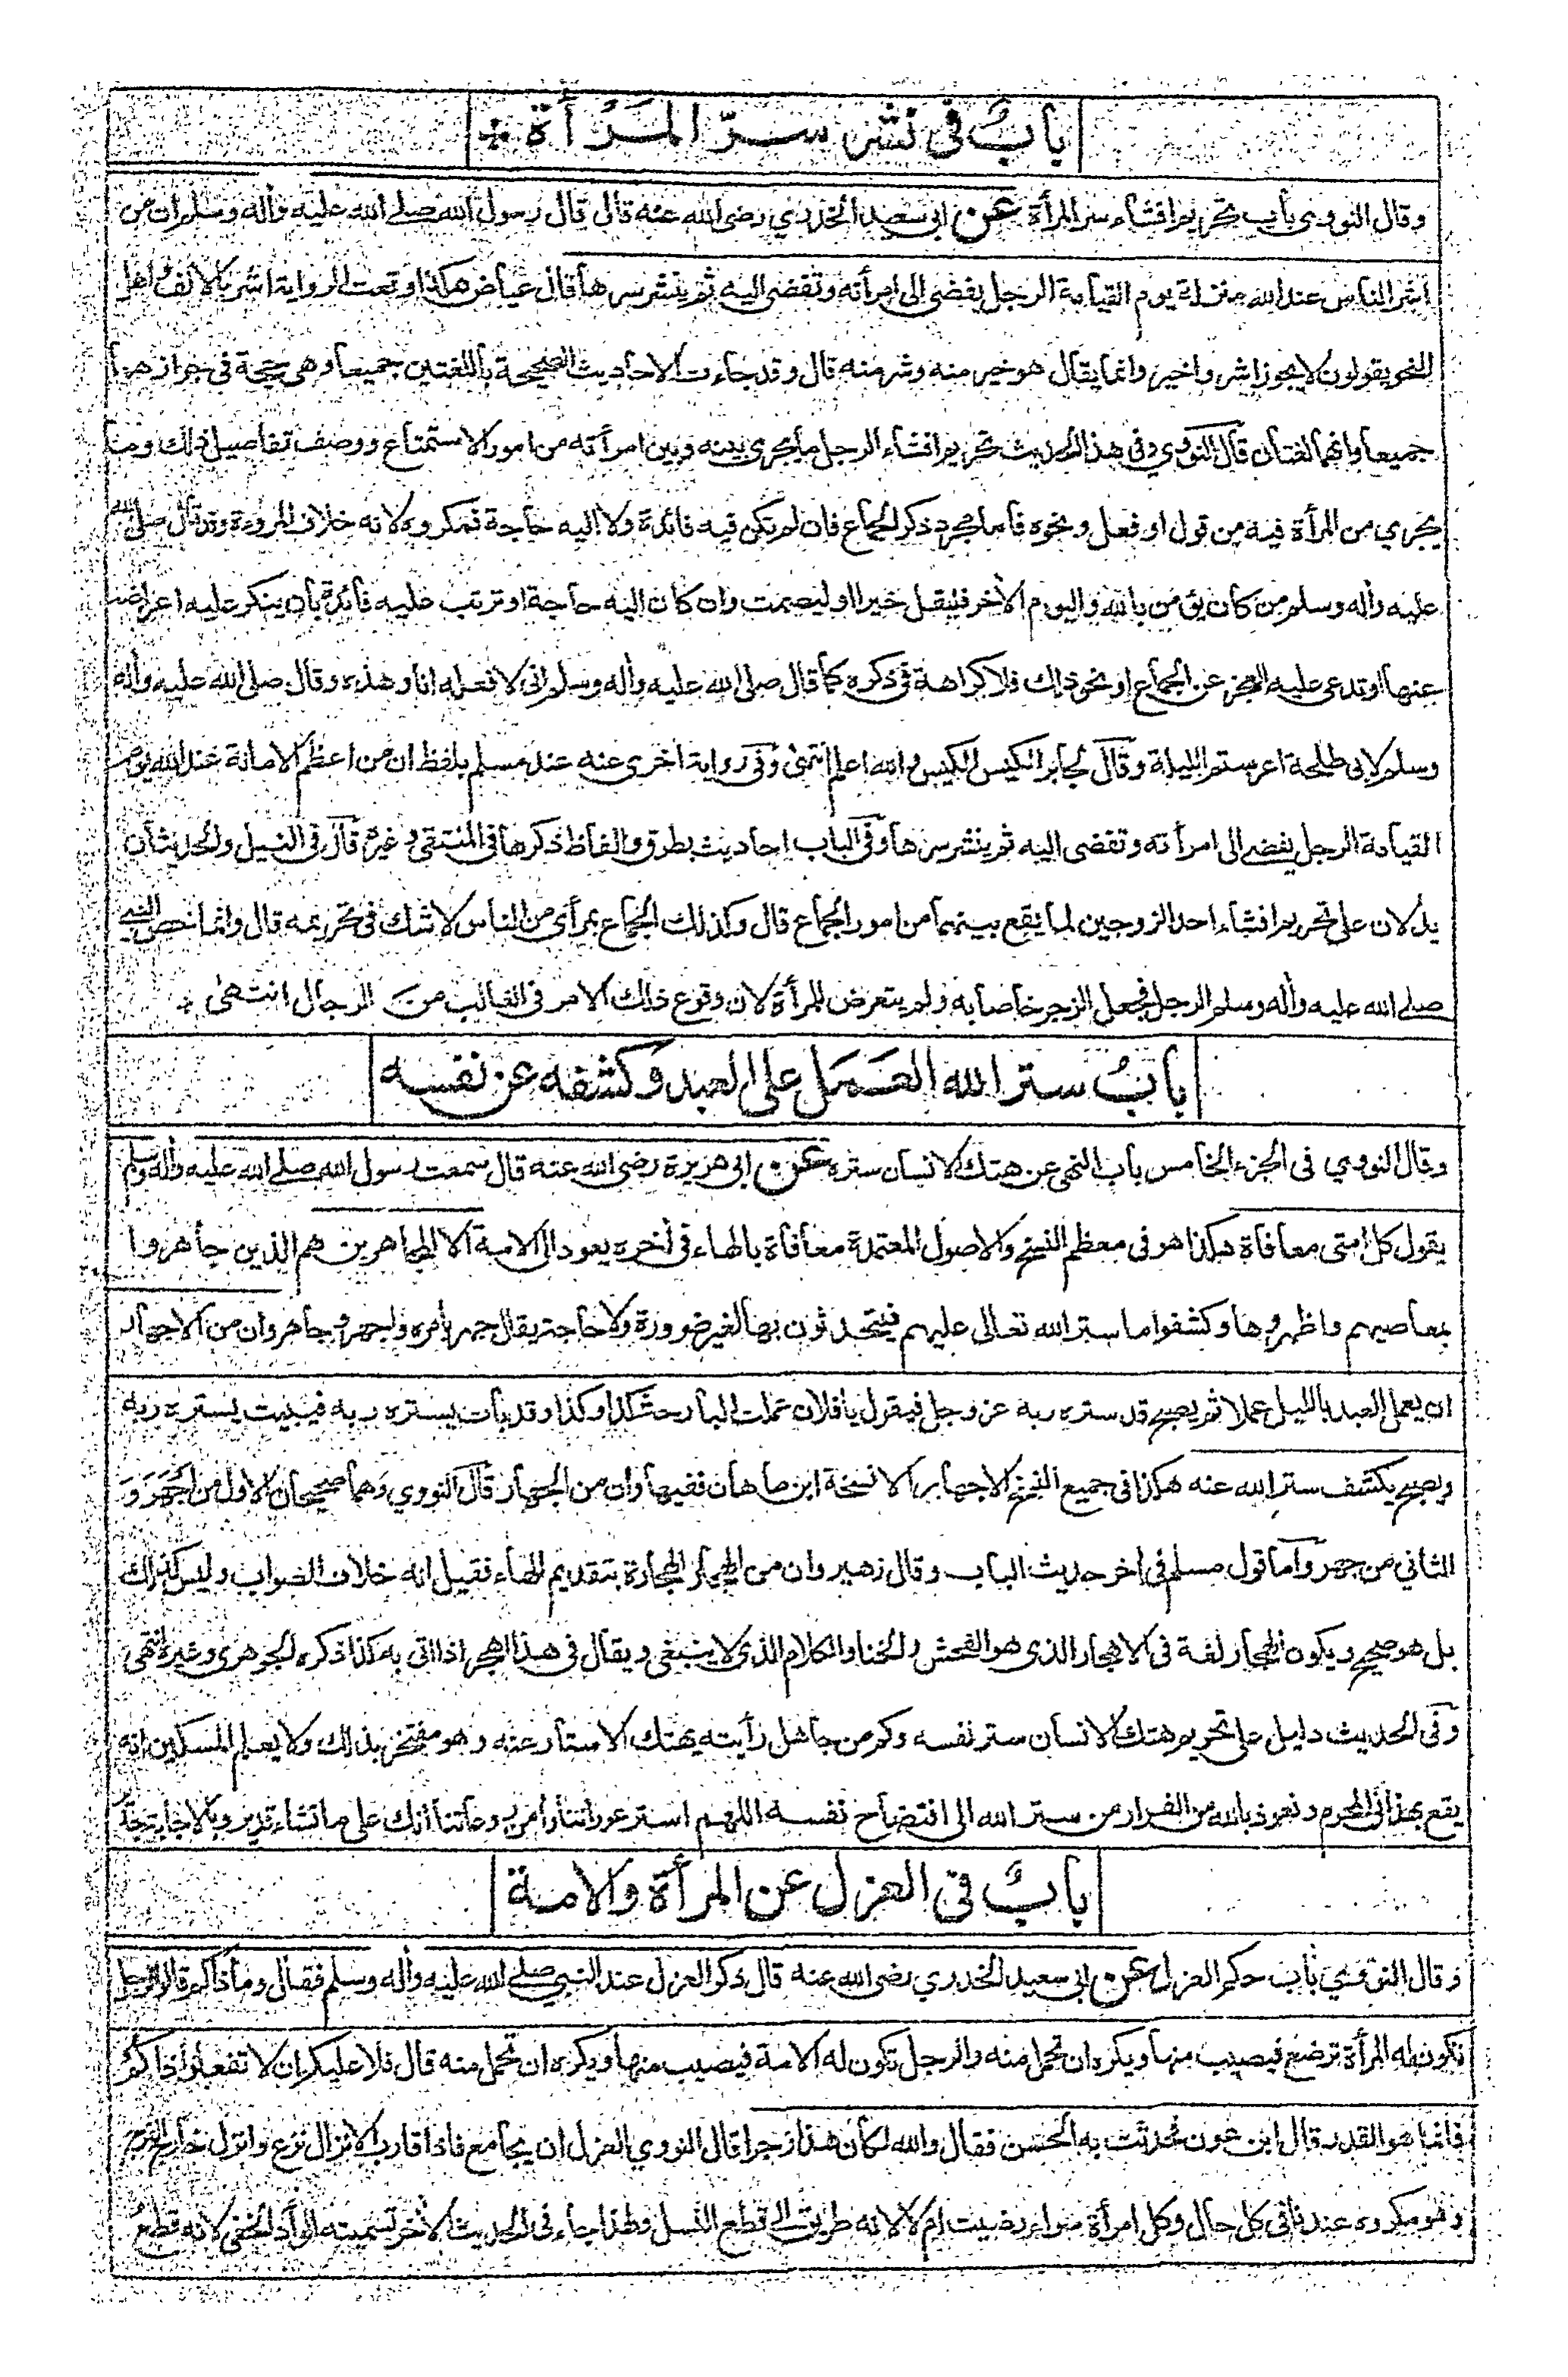 باب في نشر سرّ المرأة
وقال النووي باب تحريم افشاء سر المرأة عن ابي سعيد الخدري رضي الله عنه قال قال رسول الله صلى الله عليه وأله وسلم ان من
اشر الناس عند الله منزلة يوم القيامة الرجل يفضي الى امرأته وتفضي اليه ثم ينشر سرها قال عياض هكذا وقعت الرواية اشر بالالف واهل
النحو يقولون لا يجوز اشر واخير وانما يقال هو خير منه وشر منه قال وقد جاءت الاحاديث الصحيحة باللغتين جميعا وهي حجة في جوازهما
جميعا وانهما لغتان قال النووي وفي هذا الحديث تحريم افشاء الرجل ما يجري بينه وبين امرأته من امور الاستمتاع ووصف تفاصيل ذلك وما
يجري من المرأة فيه من قول او فعل ونحوه فأما مجرد ذكر الجماع فان لم تكن فيه فائدة ولا اليه حاجة فمكروه لانه خلاف المروءة وقد قال صلى الله
عليه وأله وسلم من كان يؤمن بالله واليوم الأخر فليقل خيرا او ليصمت وان كان اليه حاجة او ترتب عليه فائدة بأن ينكر عليه اعراضه
عنها او تدعي عليه العجز عن الجماع او نحو ذلك فلا كراهة في ذكره كما قال صلى الله عليه وأله وسلم اني لافعله انا وهذه وقال صلى الله عليه وأله
وسلم لابي طلحة اعرستم الليلة وقال لجابر الكيس الكيس والله اعلم انتهى وفي رواية اخرى عنه عند مسلم بلفظ ان من اعظم الامانة عند الله يوم
القيامة الرجل يفضي الى امرأته وتفضي اليه ثم ينشر سرها وفي الباب احاديث بطرق والفاظ ذكرها في المنتقى وغيره قال في النيل والحديثان
يدلان على تحريم افشاء احد الزوجين لما يقع بينهما من امور الجماع قال وكذلك الجماع بمرأى من الناس لا شك في تحريمه قال وانما خص النبي
صلى الله عليه وأله وسلم الرجل فجعل الزجر خاصا به ولم يتعرض للمرأة لان وقوع ذلك الامر في الغالب من الرجال انتهى
باب ستر الله العمل على العبد وكشفه عن نفسه
وقال النووي في الجزء الخامس باب النهي عن هتك الانسان ستره عن ابي هريرة رضي الله عنه قال سمعت رسول الله صلى الله عليه وأله وسلم
يقول كل امتي معافاة هكذا هو في معظم النسخ والاصول المعتمدة معافاة بالهاء في أخره يعود الى الامة الا المجاهرين هم الذين جاهروا
بمعاصيهم واظهروها وكشفوا ما ستر الله تعالى عليهم فيتحدثون بها لغير ضرورة ولا حاجة يقال جهر بأمره واجهر وجاهر وان من الاجهار
ان يعمل العبد بالليل عملا ثم يصبح قد ستره ربه عز وجل فيقول يا فلان عملت البارحة كذا وكذا وقد بات يستره ربه فيبيت يستره ربه
ويصبح يكشف ستر الله عنه هكذا في جميع النسخ الاجهار الا نسخة ابن ماهان ففيها وان من الجهار قال النووي وهما صحيحان الاول من اجهر و
الثاني من جهر وأما قول مسلم في أخر حديث الباب وقال زهير وان من الهجار الهجارة بتقديم الهاء فقيل انه خلاف الصواب وليس كذلك
بل هو صحيح ويكون الهجار لغة في الاهجار الذي هو الفحش والخنا والكلام الذي لا ينبغي ويقال في هذا اهجر اذا اتى به كذا ذكره الجوهري وغيره انتهى
وفي الحديث دليل على تحريم هتك الانسان ستر نفسه وكم من جاهل رأيته يهتك الاستار عنه وهو مفتخر بذلك ولا يعلم المسكين انه
يقع بهذا في المحرم ونعوذ بالله من الفرار من ستر الله الى افتضاح نفسه اللهم استر عوراتنا وأمن روعاتنا انك على ما تشاء قدير وبالاجابة جدير
باب في العزل عن المرأة والامة
وقال النووي باب حكم العزل عن ابي سعيد الخدري رضي الله عنه قال ذكر العزل عند النبي صلى الله عليه وأله وسلم فقال وما ذاكم قالوا الرجل
تكون له المرأة ترضع فيصيب منها ويكره ان تحمل منه والرجل تكون له الامة فيصيب منها ويكره ان تحمل منه قال فلا عليكم ان لا تفعلوا ذاكم
فانما هو القدر قال ابن عون فحدثت به الحسن فقال والله لكأن هذا زجر قال النووي العزل ان يجامع فاذا قارب الانزال نزع وانزل خارج الفرج
وهو مكروه عندنا في كل حال وكل امرأة سواء رضيت ام لا لانه طريق الى قطع النسل ولهذا جاء في الحديث الأخر تسميته الوأد الخفي لانه قطع